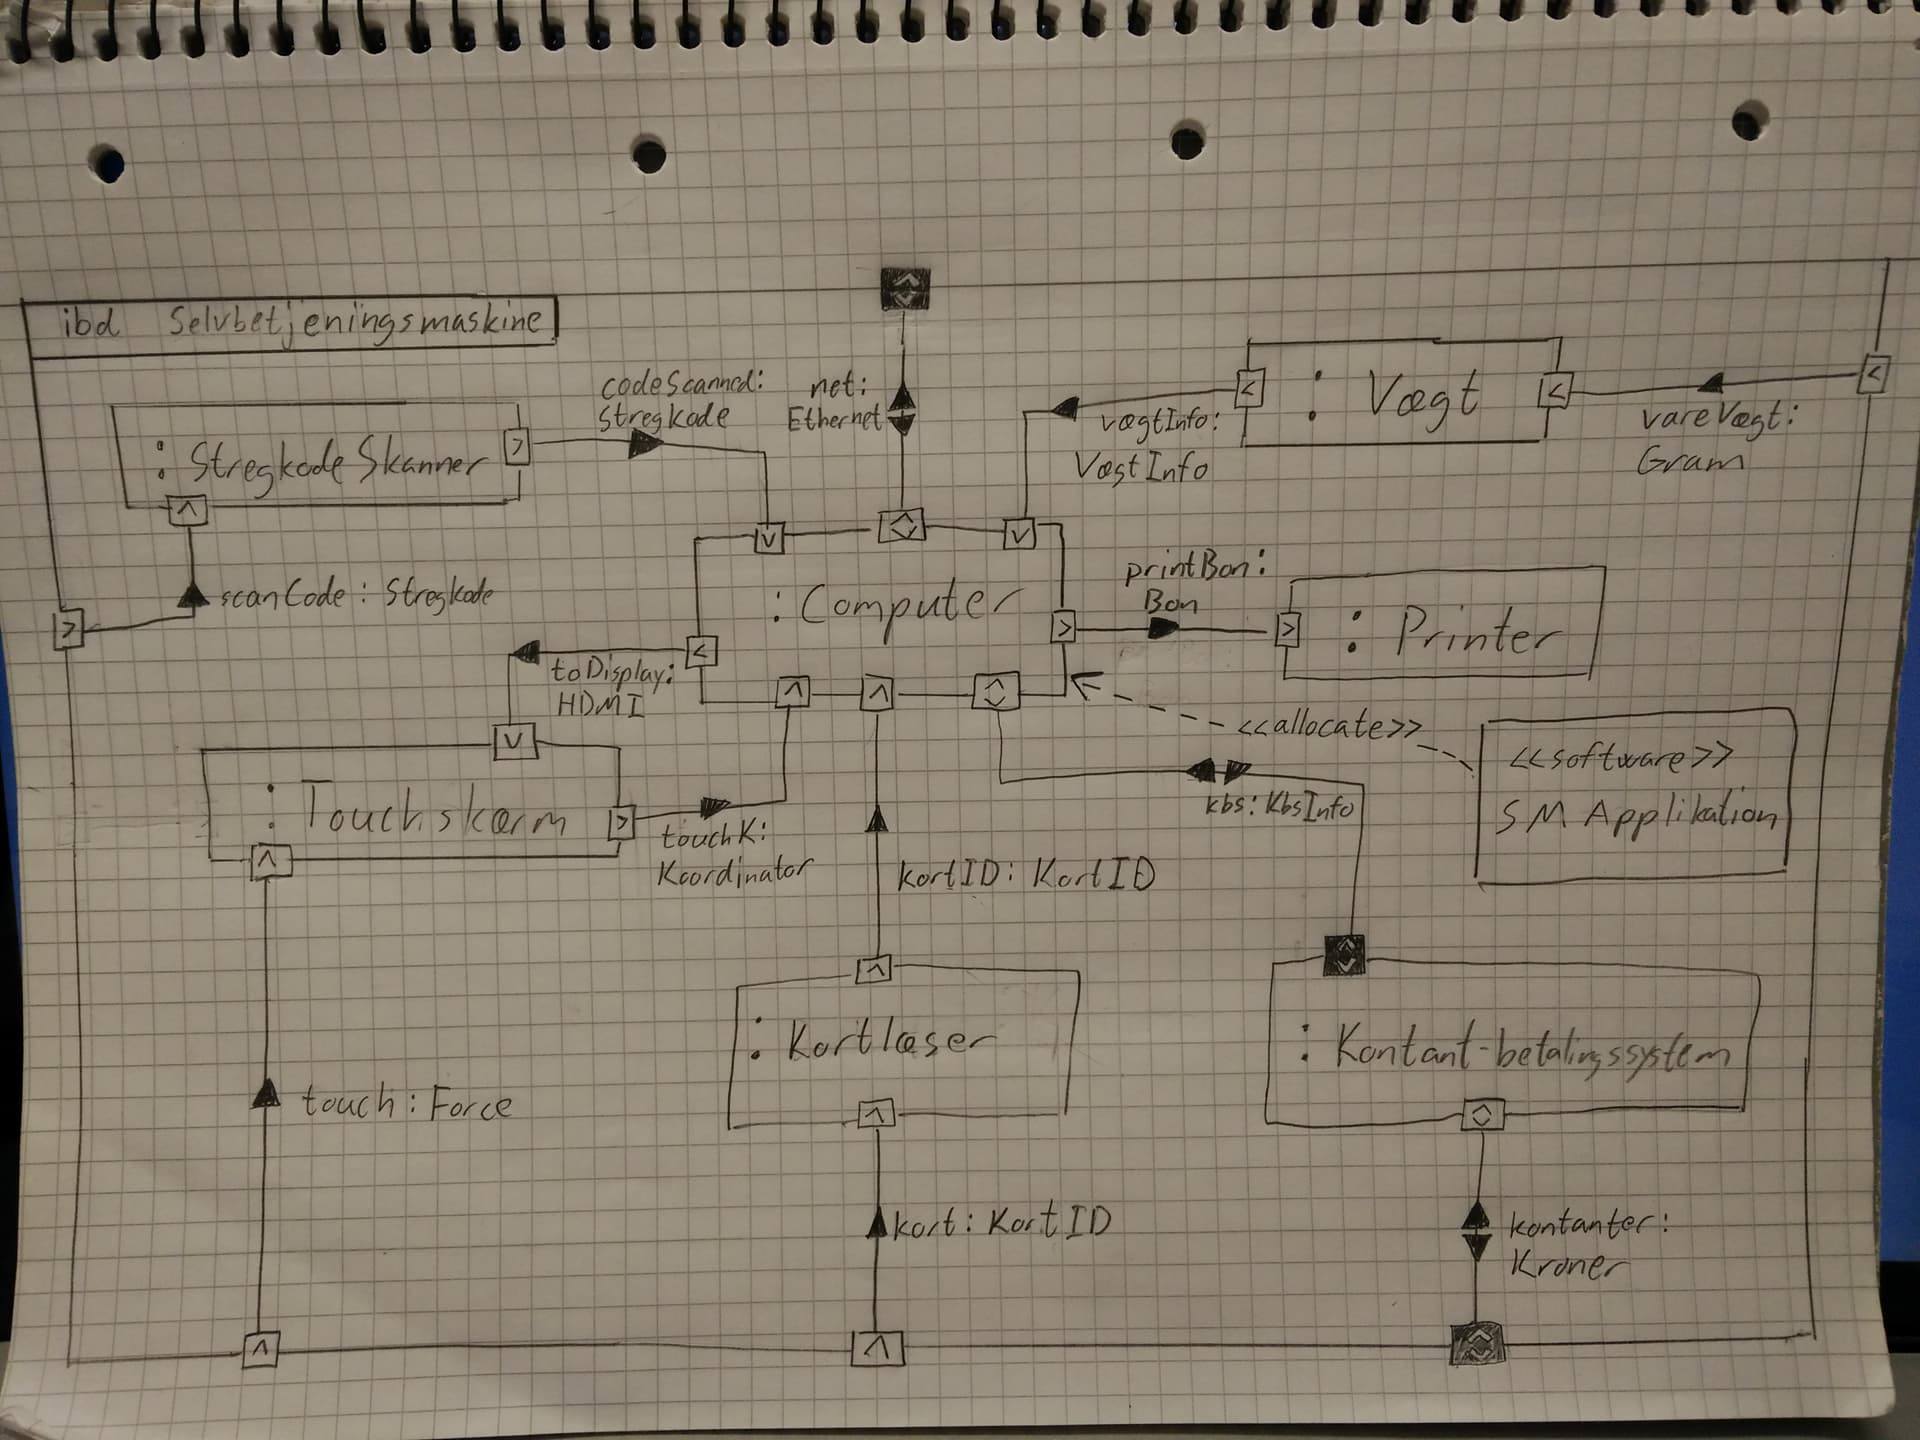 ibd Selvbetjeningsmaskine
codeScanned:
Stregkode
net:
Ethernet
: Vægt
vægtInfo:
VægtInfo
vareVægt:
Gram
: Stregkode Skanner
scanCode : Stregkode
: Computer
printBon:
Bon
: Printer
toDisplay:
HDMI
<<allocate>>
<<software>>
SM Applikation
: Touchskærm
touchK:
Koordinator
kbs: KbsInfo
kortID: KortID
: Kortlæser
: Kontant-betalingssystem
touch: Force
kort: KortID
kontanter:
Kroner